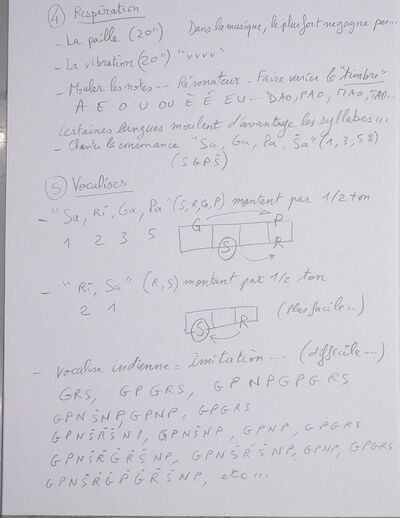 ④ Respiration
- La paille (20") Dans la musique, le plus fort ne gagne pas...
- La vibration (20") "vvvv"
- Mouler les notes... Résonateur - Faire varier le "timbre"
A E O U OU È É EU... DAO, PAO, MAO, TAO...
Certaines langues moulent d'avantage les syllabes...
- Chanter la consonance "Sa, Ga, Pa, Ṡa" (1, 3, 5, 8)
(S G P Ṡ)
⑤ Vocalises
- "Sa, Ri, Ga, Pa" (S, R, G, P) montant par 1/2 ton
1 2 3 5
G P
S R
- "Ri, Sa" (R, S) montant par 1/2 ton
2 1
S R (Plus facile...)
- Vocalise indienne = imitation... (difficile...)
GRS, GPGRS, GPNPGPGRS
GPNṠNP, GPNP, GPGRS
GPNṠṘṠNP, GPNṠNP, GPNP, GPGRS
GPNṠṘĠṘṠNP, GPNṠṘṠNP, GPNP, GPGRS
GPNṠṘĠṖĠṘṠNP, etc...